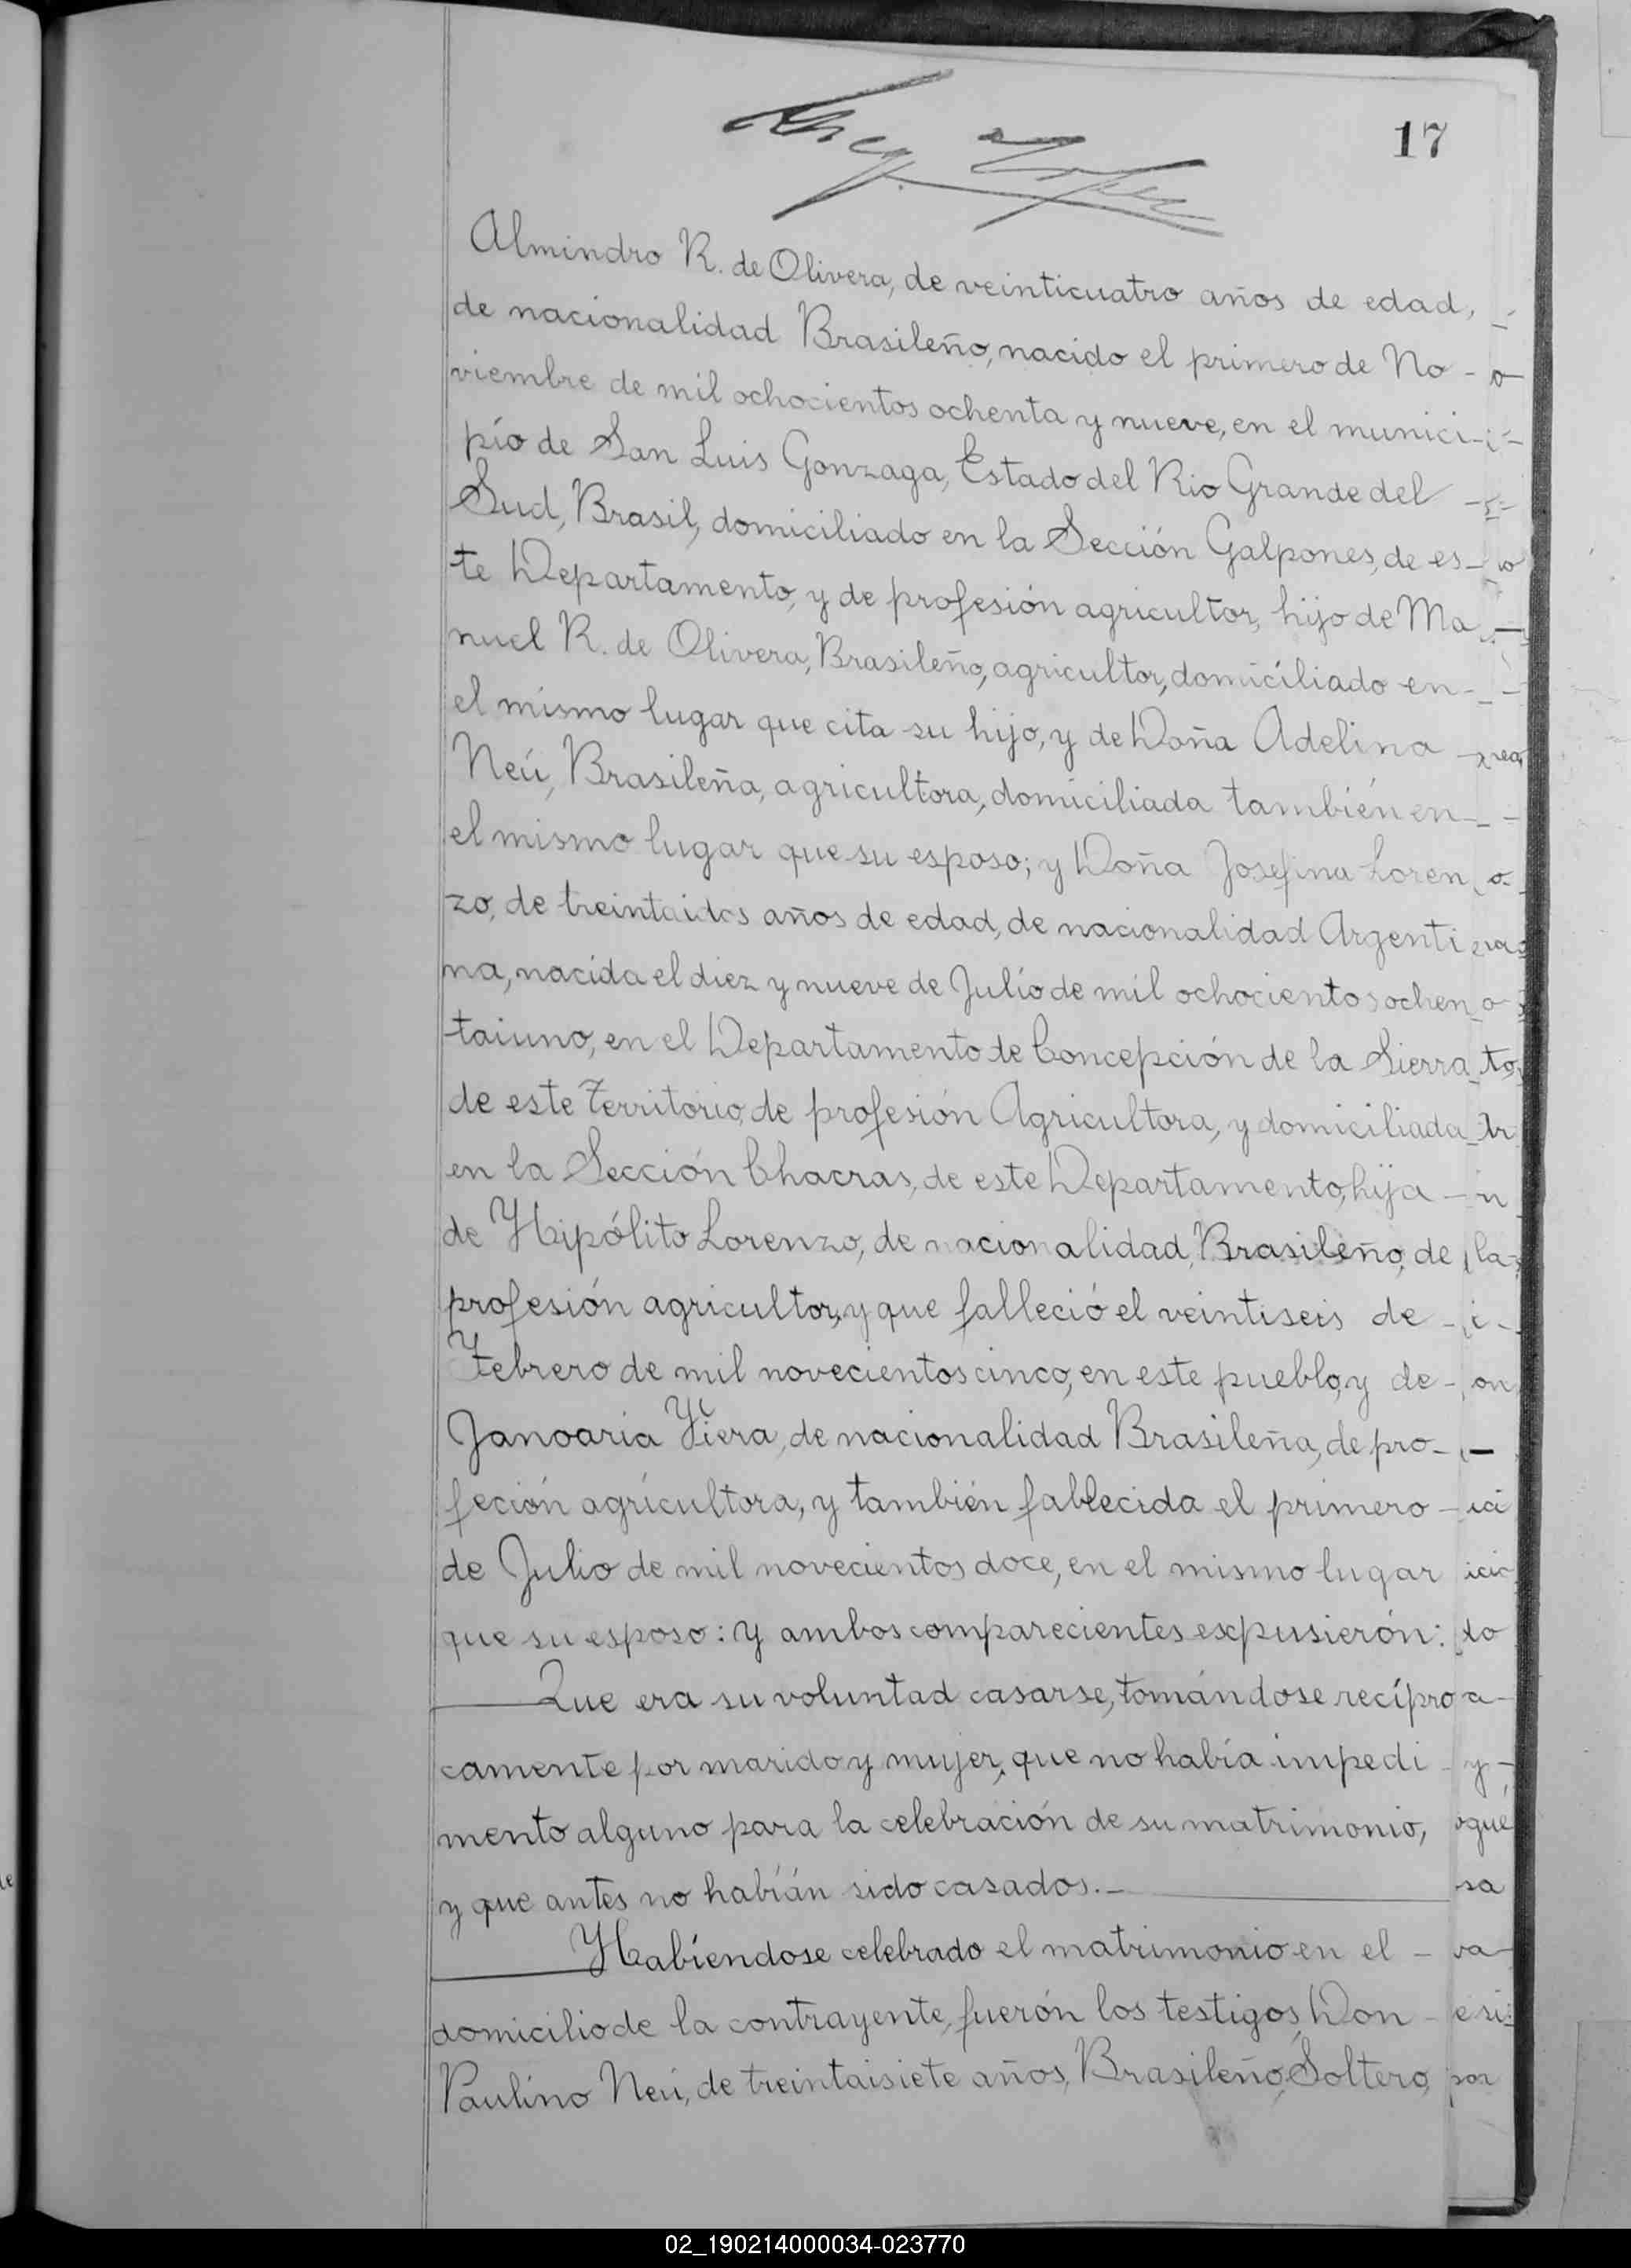 17
Almindro R. de Olivera, de veinticuatro años de edad,
de nacionalidad Brasileño, nacido el primero de No-
viembre de mil ochocientos ochenta y nueve, en el munici-
pio de San Luis Gonzaga, Estado del Rio Grande del
Sud, Brasil, domiciliado en la Sección Galpones, de es-
te Departamento, y de profesión agricultor, hijo de Ma
nuel R. de Olivera, Brasileño, agricultor, domiciliado en-
el mismo lugar que cita su hijo, y de Doña Adelina
Neú, Brasileña, agricultora, domiciliada también en-
el mismo lugar que su esposo; y Doña Josefina Loren
zo, de treintaidos años de edad, de nacionalidad Argenti
na, nacida el diez y nueve de Julio de mil ochocientos ochen
taiuno, en el Departamento de Concepción de la Sierra
de este Territorio, de profesión Agricultora, y domiciliada
en la Sección Chacras, de este Departamento, hija -
de Hipólito Lorenzo, de nacionalidad, Brasileño, de
profesión agricultor, y que falleció el veintiseis de -
Febrero de mil novecientos cinco, en este pueblo, y de -
Janoaria Viera, de nacionalidad Brasileña, de pro-
feción agricultora, y también fallecida el primero -
de Julio de mil novecientos doce, en el mismo lugar
que su esposo: Y ambos comparecientes expusierón:
Que era su voluntad casarse, tomándose recípro
camente por marido y mujer, que no había impedi
mento alguno para la celebración de su matrimonio,
y que antes no habían sido casados.-
Habiéndose celebrado el matrimonio en el -
domicilio de la contrayente, fuerón los testigos, Don -
Paulino Neú, de treintaisiete años, Brasileño, Soltero,
02_190214000034-023770